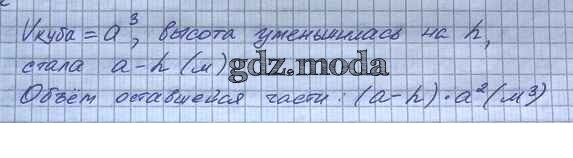 Vкуба = a³, высота уменьшилась на h,
стала a-h (м) gdz.moda
Объём оставшейся части: (a-h)·a² (м³)